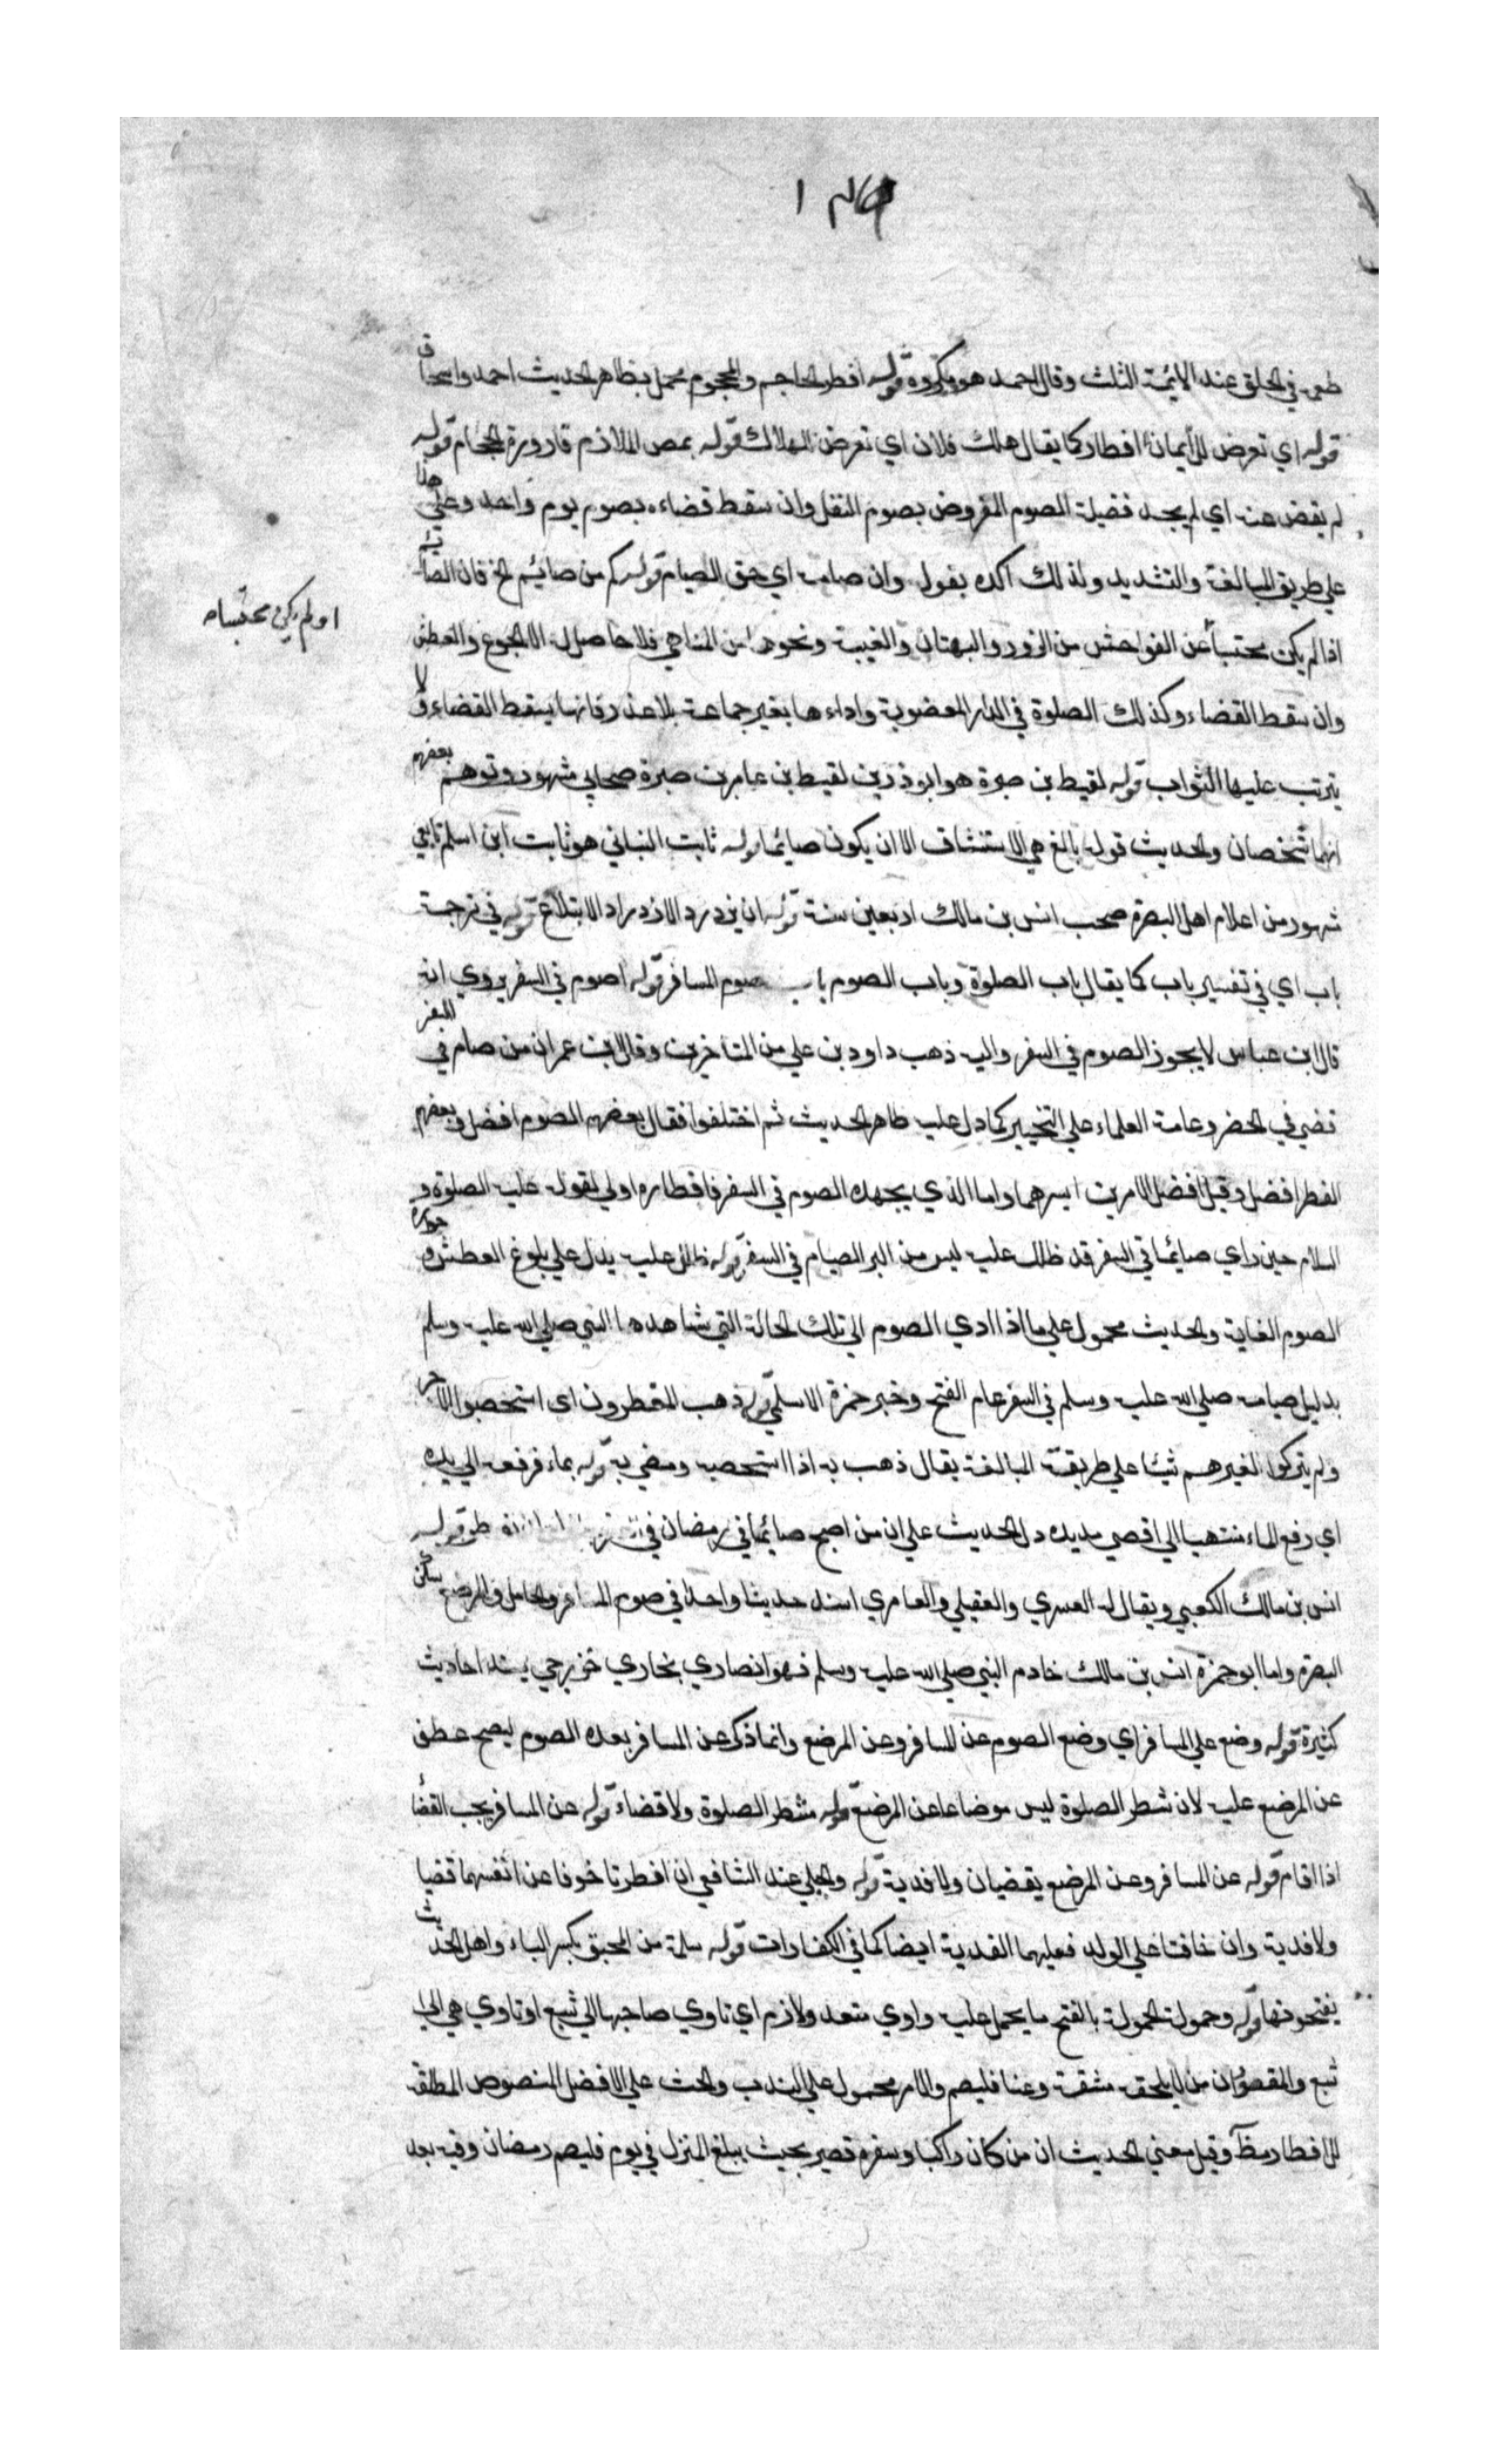 طعمه في الحلق عند الايمة الثلث وقال احمد هو مكروه قوله افطر الحاجم والمحجوم عمل بظاهر الحديث احمد واسحاق
قوله اي تعرض للافطار كما يقال هلك فلان اي تعرض للهلاك قوله بمص الملازم قارورة الحجام قوله
لم يقض عنه اي لم يجد فضيلة الصوم المفروض بصوم النفل وان سقط قضاءه بصوم يوم واحد وهذا
علي طريق المبالغة والتشديد ولذلك اكده بقوله وان صامه اي حق الصيام قوله كم من صائيم الخ فان الصائم
اذا لم يكن محتسبا عن الفواحش من الزور والبهتان والغيبة ونحوها من المناهي فلا حاصل له الا الجوع والعطش
اولم يكن محتسبا
وان سقط القضاء وكذلك الصلوة في الدار المغصوبة واداءها بغير جماعة بلا عذر فانها يسقط القضاء ولا
يترتب عليها الثواب قوله لقيط بن صبرة هو ابو رزين لقيط بن عامر بن صبرة صحابي مشهور وتوهم بعضهم
انهما شخصان والحديث قوله بالغ في الاستنشاق الا ان يكون صايما قوله ثابت البناني هو ثابت ابن اسلم تابعي
شهور من اعلام اهل البصرة صحب انس بن مالك اربعين سنة قوله ان يزدرد الازدراد الابتلاع قوله في ترجمة
باب اي في تفسير باب كما يقال باب الصلوة وباب الصوم باب صوم المسافر قوله اصوم في السفر يروي انه
قال ابن عباس لا يجوز الصوم في السفر واليه ذهب داود بن علي من المتاخرين وقال ابن عمر ان من صام في السفر
قضي في الحضر وعامة العلماء علي التخيير كما دل عليه ظاهر الحديث ثم اختلفوا فقال بعضهم الصوم افضل وبعضهم
الفطر افضل وقيل افضل الامرين ايسرهما واما الذي يجهده الصوم في السفر فافطاره اولي لقوله عليه الصلوة و
السلام حين راي صايما في السفر قد ظلل عليه ليس من البر الصيام في السفر قوله ظلل عليه يدل علي بلوغ العطش و حرارة
الصوم الغاية والحديث محمول علي ما اذا ادي الصوم الي تلك الحالة التي شاهدها النبي صلي الله عليه وسلم
بدليل صيامه صلي الله عليه وسلم في السفر عام الفتح وخبر حمزة الاسلمي قوله ذهب المفطرون اي استحصبوا الاجر
ولم يتركوا لغيرهم شيئا علي طريقة المبالغة يقال ذهب به اذا استحصبه ومضي به قوله بماء فرفعه الي يده
اي رفع الماء منتهيا الي اقصي مد يده دل الحديث علي ان من اصبح صايما في رمضان في قوله
انس بن مالك الكعبي ويقال له القسري والعقيلي والعامري اسند حديثا واحدا في صوم المسافر والحامل والمرضع سكن
البصرة واما ابو حمزة انس بن مالك خادم النبي صلي الله عليه وسلم فهو انصاري نجاري خزرجي يسند احاديث
كثيرة قوله وضع علي المسافر اي وضع الصوم عن المسافر وعن المرضع وانما ذكر عن المسافر بعده الصوم ليصح عطف
عن المرضع عليه لان شطر الصلوة ليس موضاعا عن المرضع قوله شطر الصلوة ولا قضاء قوله عن المسافر يجب القضا
اذا اقام قوله عن المسافر وعن المرضع يقضيان ولا فدية قوله والحبلي عند الشافعي ان افطرتا خوفا عن انفسهما قضيا
ولا فدية وان خافتا علي الولد فعليهما الفدية ايضا كما في الكفارات قوله سلمة من المحبق بكسر الباء واهل الحديث
يفتحونها قوله وحمولة الحمولة بالفتح ما يحمل عليه واوي متعد ولازم اي تاوي صاحبها الي شبع او تاوي هي الي
شبع والمقصود ان من لا يلحقه مشقة وعنا فليصم والامر محمول علي الندب والحث علي الافضل للنصوص المطلقة
للافطار وقيل معني الحديث ان من كان راكبا وسفره قصير بحيث يبلغ المنزل في يوم فليصم رمضان وفيه بعد